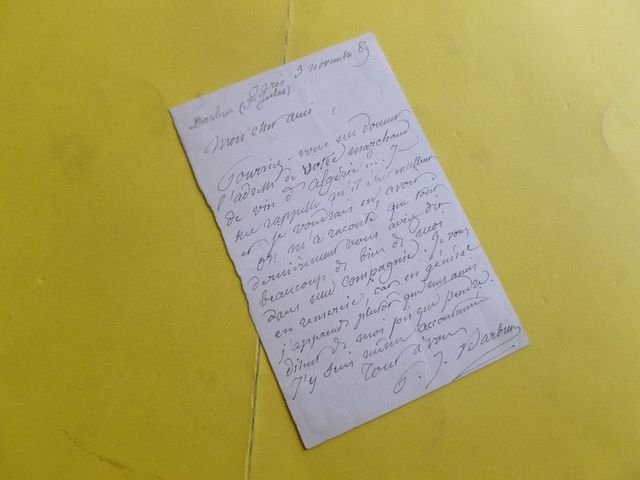 Paris 3 novembre 89
Barbier (P. Jules)
Mon cher ami,
Pourriez-vous me donner
l'adresse de votre marchand
de vin d'Algérie... Je
me rappelle qu'il était excellent
et je voudrais en avoir
On m'a raconté que tout
dernièrement vous aviez dit
beaucoup de bien de moi
dans une compagnie. Je vous
en remercie, car en général
j'apprends plutôt que mes amis
disent de moi pis que pendre.
J'y suis même accoutumé
Tout à vous
P. J. Barbier